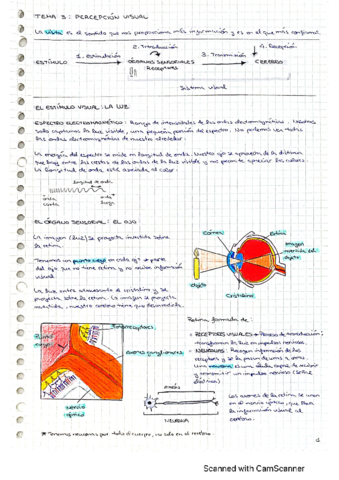 TEMA 3: PERCEPCIÓN VISUAL
La vista es el sentido que nos proporciona más información y es en el que más confiamos.
1. Estimulación
2. Transducción
3. Transmisión
4. Recepción
ESTÍMULO
ÓRGANOS SENSORIALES
Receptores
CEREBRO
Sistema visual
EL ESTÍMULO VISUAL: LA LUZ
ESPECTRO ELECTROMAGNÉTICO: Rango de intensidades de las ondas electromagnéticas. Nosotros
solo captamos la luz visible, una pequeña porción del espectro. No podemos ver todas
las ondas electromagnéticas de nuestro alrededor.
La energía del espectro se mide en longitud de onda. Nuestro ojo se aprovecha de la distancia
que hay entre las crestas de las ondas de la luz visible y nos permite apreciar los colores.
La longitud de onda está asociada al color.
longitud de onda
onda corta
onda larga
EL ÓRGANO SENSORIAL: EL OJO
La imagen (luz) se proyecta invertida sobre
la retina.
Tenemos un punto ciego en cada ojo → parte
del ojo que no tiene retina y no recibe información
visual.
La luz entra atravesando el cristalino y se
proyecta sobre la retina. La imagen se proyecta
invertida, nuestro cerebro tiene que
Córnea
Retina
Imagen invertida del objeto
objeto
Cristalino
Punto ciego
Fotorreceptores
Axones ganglionares
Nervio óptico
Retina formada de:
RECEPTORES VISUALES → Proceso de transducción;
transforman la luz en impulsos nerviosos.
NEURONAS: Recogen información de los
receptores y se la pasan de unas a otras.
Una neurona es una célula capaz de recibir
y transmitir un impulso nervioso (señal
eléctrica)
AXÓN
NEURONA
Los axones de la retina se unen
en el nervio óptico, que lleva
la información visual al
cerebro.
* Tenemos neuronas por todo el cuerpo, no solo en el cerebro.
Scanned with CamScanner